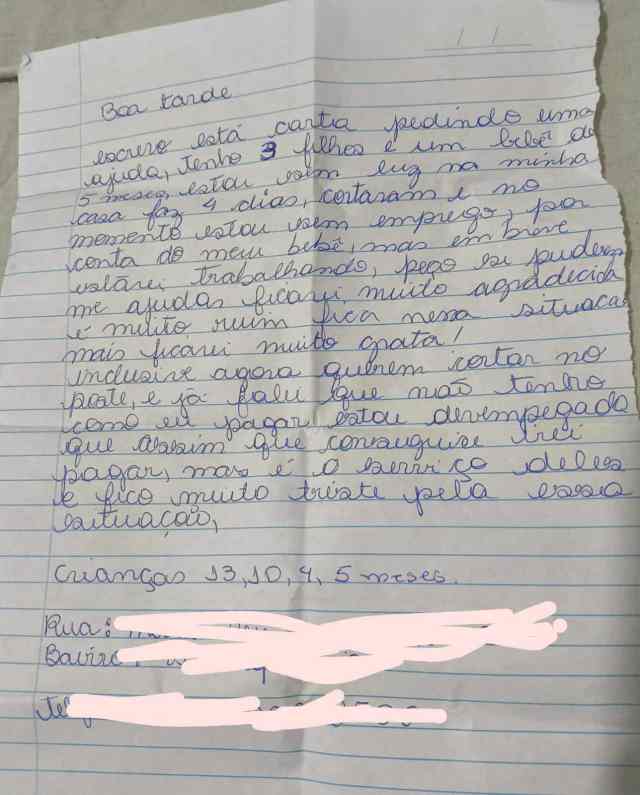 / /
Boa tarde
escrevo está carta pedindo uma
ajuda, tenho 3 filhos e um bebê de
5 meses, estou sem luz na minha
casa faz 4 dias, cortaram e no
momento estou sem emprego, por
conta do meu bebê, mas em breve
estarei trabalhando, peço se puderem
me ajudar ficarei muito agradecida
é muito ruim fica nessa situacao
mais ficarei muito grata!
inclusive agora querem cortar no
poste, e já falei que não tenho
como eu pagar estou desempegada
que assim que conseguise irei
pagar, mas é o serviço deles
e fico muito triste pela essa
situação,
Crianças 13, 10, 4, 5 meses.
Rua:
Bairro:
Tel